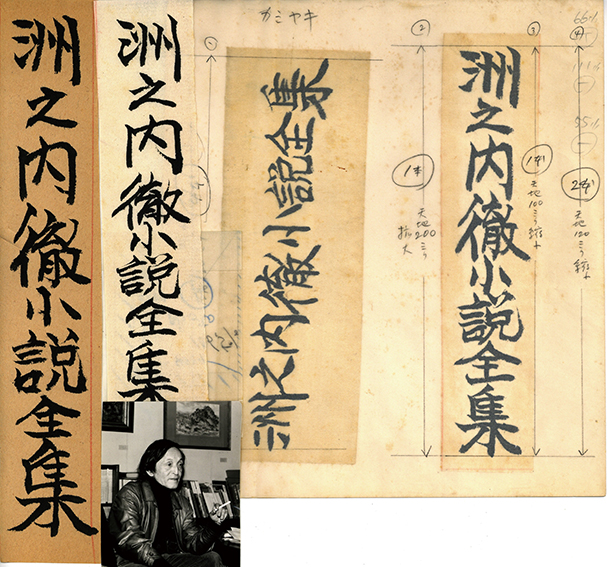 洲之内徹小説全集
洲之内徹小説全集
カミヤキ
①
洲之内徹小説全集
②
1本
天地200ミリ
拡大
洲之内徹小説全集
③
1本
天地100ミリ縮小
④
2本
天地120ミリ縮小